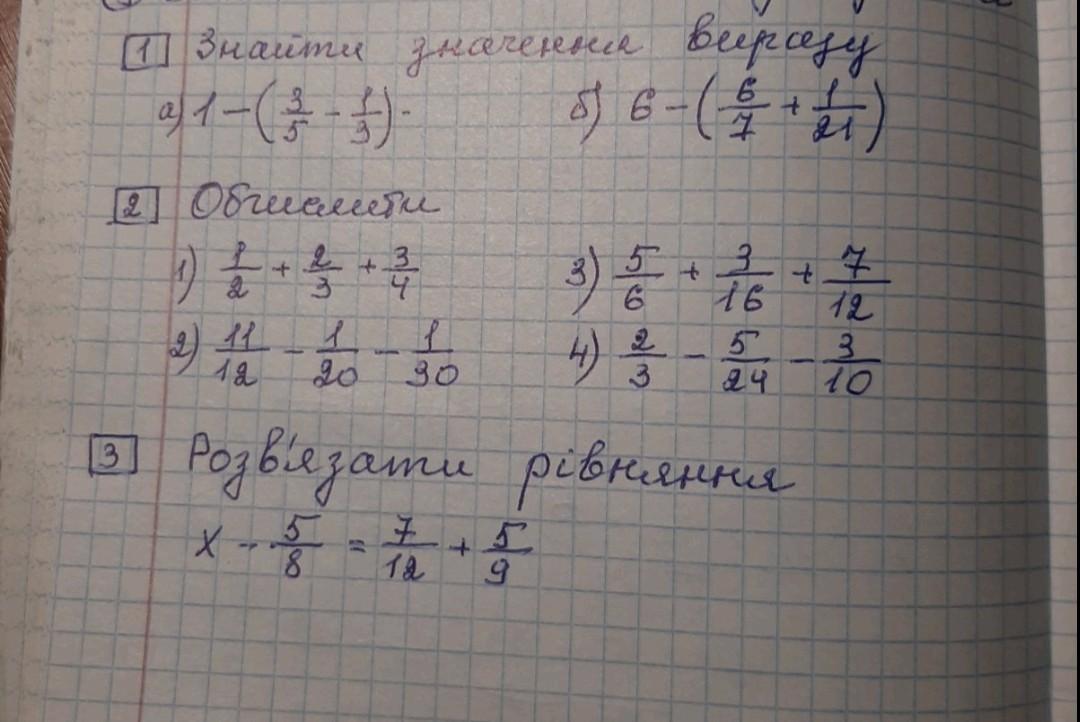 1 Знайти значення виразу
а) 1 - (3/5 - 1/3) -
б) 6 - (6/7 + 1/21)
2 Обчислити
1) 1/2 + 2/3 + 3/4
3) 5/6 + 3/16 + 7/12
2) 11/12 - 1/20 - 1/30
4) 2/3 - 5/24 - 3/10
3 Розв'язати рівняння
x - 5/8 = 7/12 + 5/9